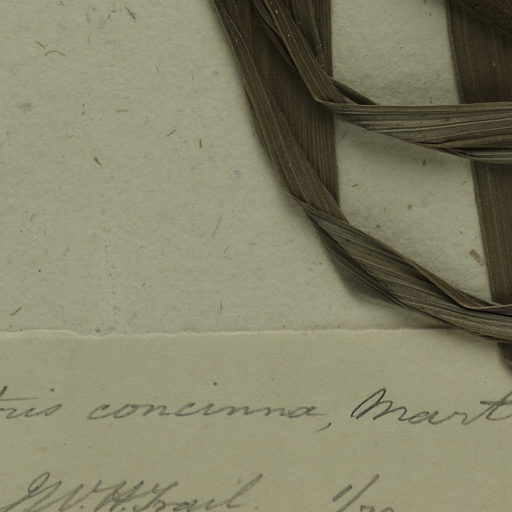 tris concinna, Mart
J.W.H. Trail. 1/